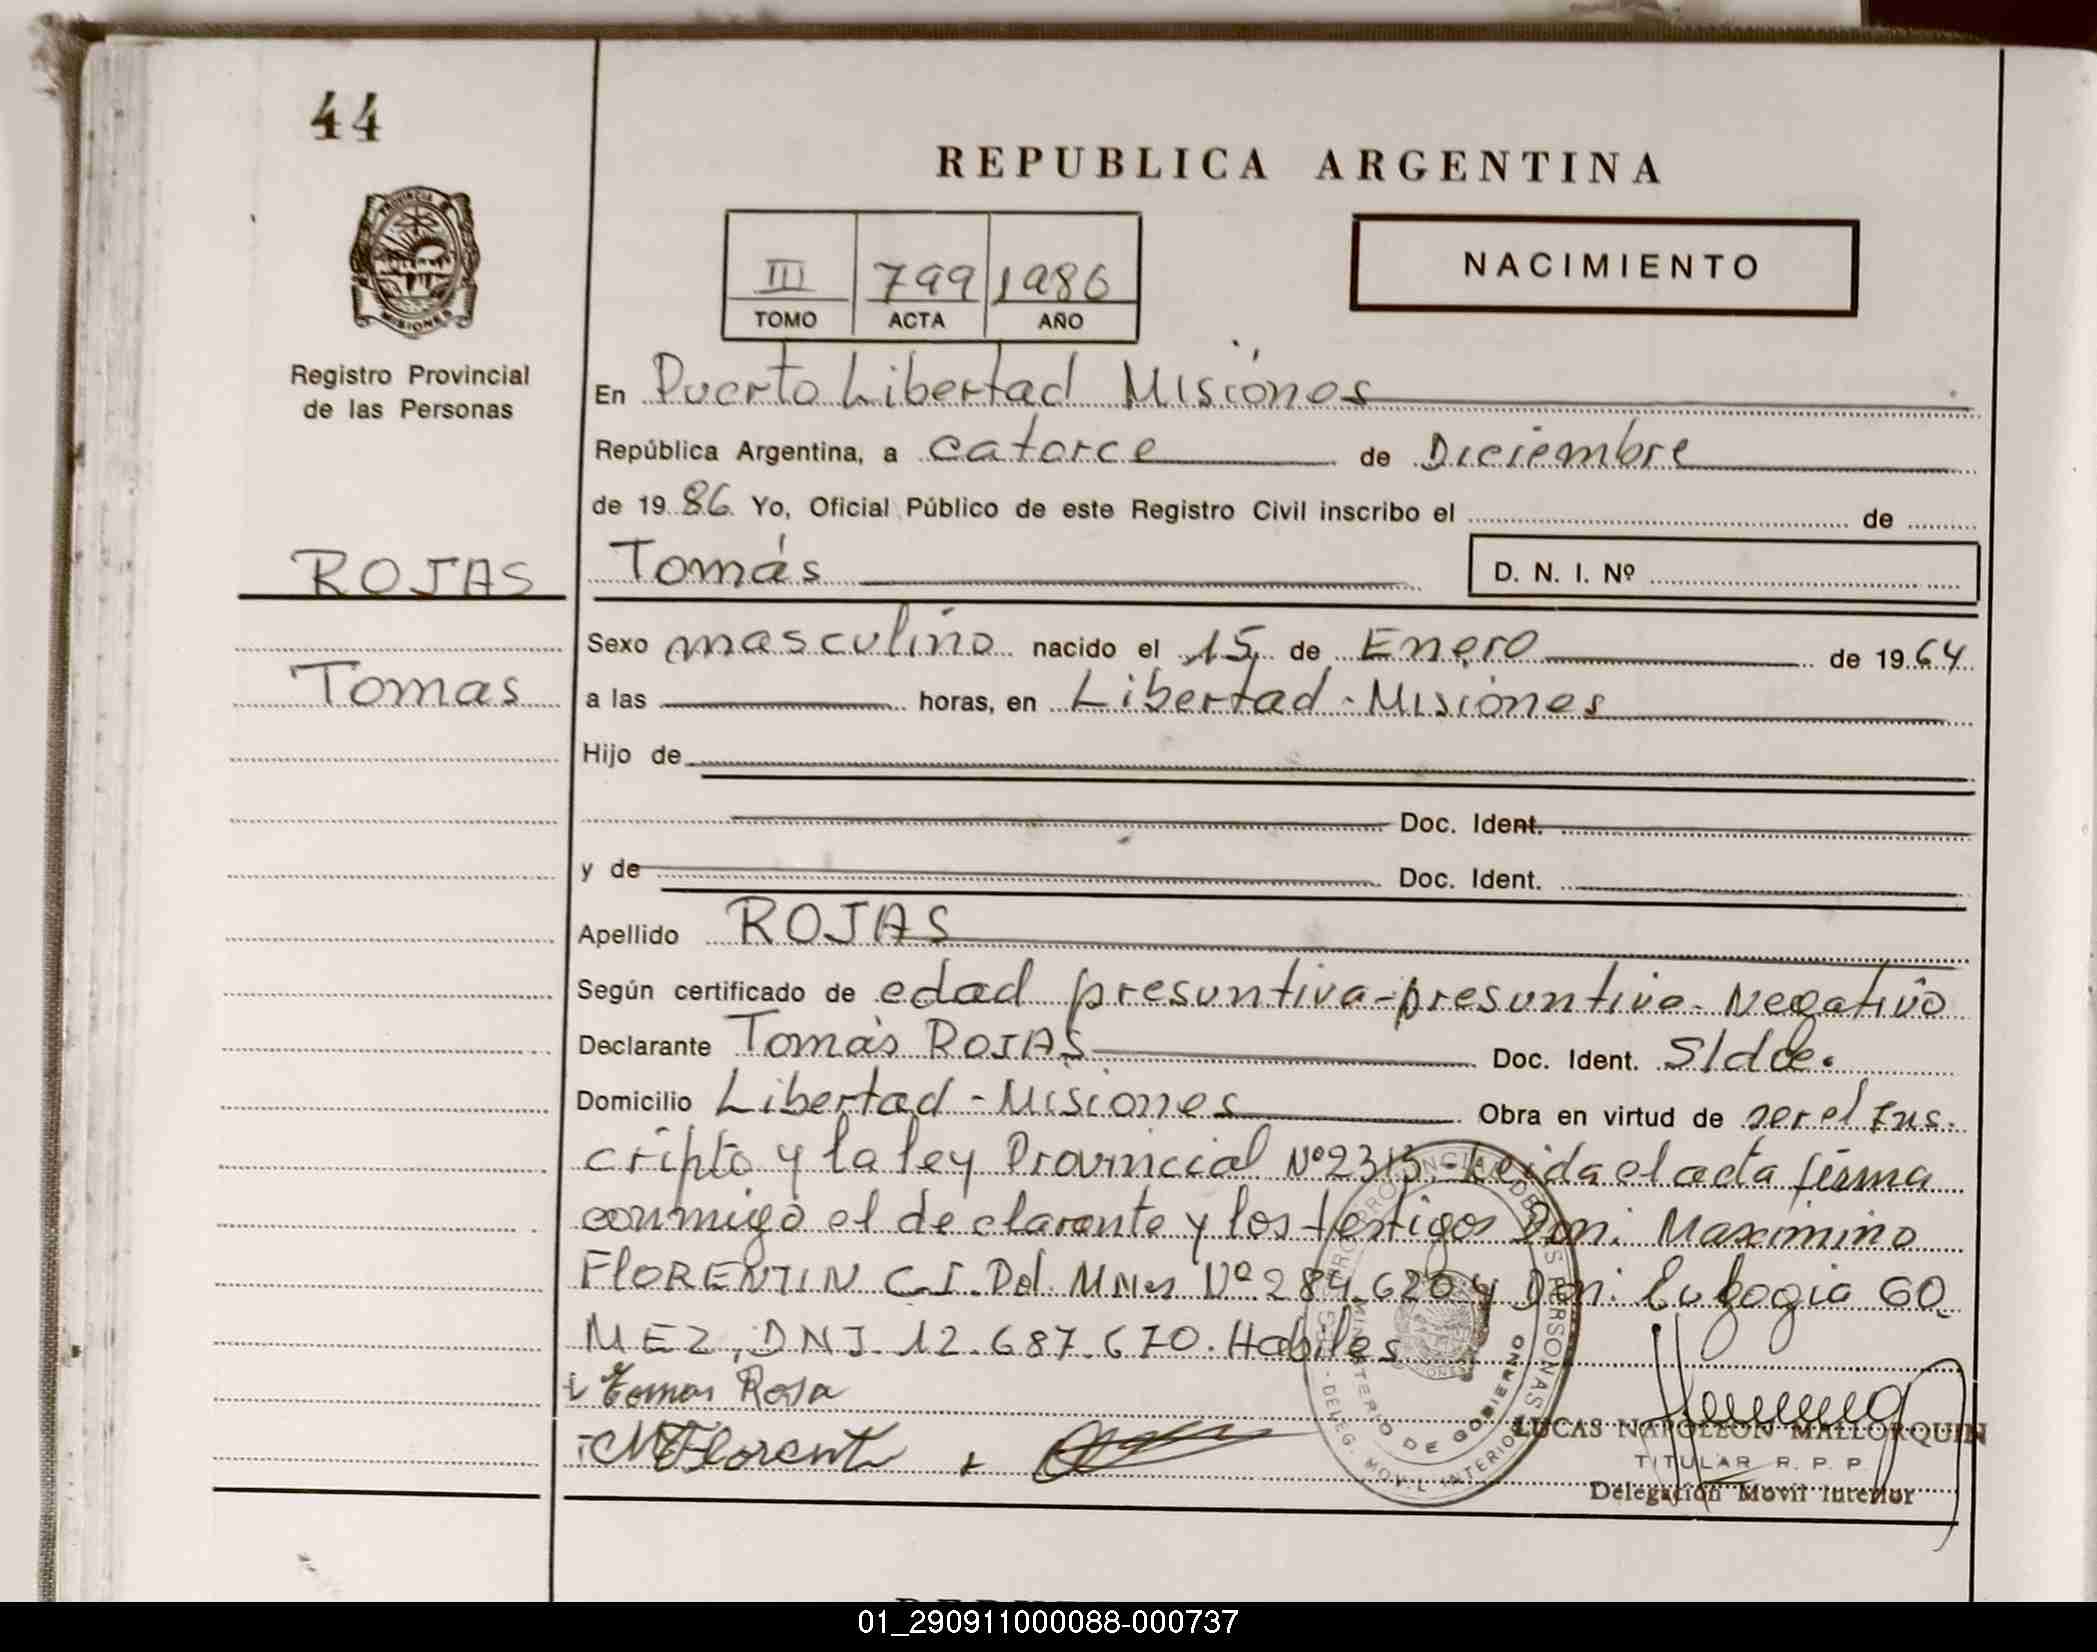 44
REPUBLICA ARGENTINA
PROVINCIA DE
MISIONES
III 799 1986
TOMO ACTA AÑO
NACIMIENTO
Registro Provincial
de las Personas
En Puerto Libertad Misiones
República Argentina, a catorce de Diciembre
de 1986 Yo, Oficial Público de este Registro Civil inscribo el de
ROJAS Tomás D. N. I. Nº
Sexo masculino nacido el 15 de Enero de 1964
Tomas a las horas, en Libertad - Misiones
Hijo de
Doc. Ident.
y de Doc. Ident.
Apellido ROJAS
Según certificado de edad presuntiva-presuntiva-Negativo
Declarante Tomás ROJAS Doc. Ident. S/doc.
Domicilio Libertad - Misiones Obra en virtud de ser el Ins-
cripto y la ley Provincial Nº 2313.- Leida el acta firma
conmigo el declarante y los testigos Don: Maximino
FlORENTIN C.I. Pol. Mnes Nº 284.620 y Don: Eulogio GO
MEZ, DNI. 12.687.670. Habiles
Tomas Rosa
M Florentin
LUCAS NAPOLEON MALLORQUIN
TITULAR R. P. P.
Delegación Movil Interior
MINISTERIO DE GOBIERNO
DELEG. MOVIL INTERIOR
01_290911000088-000737